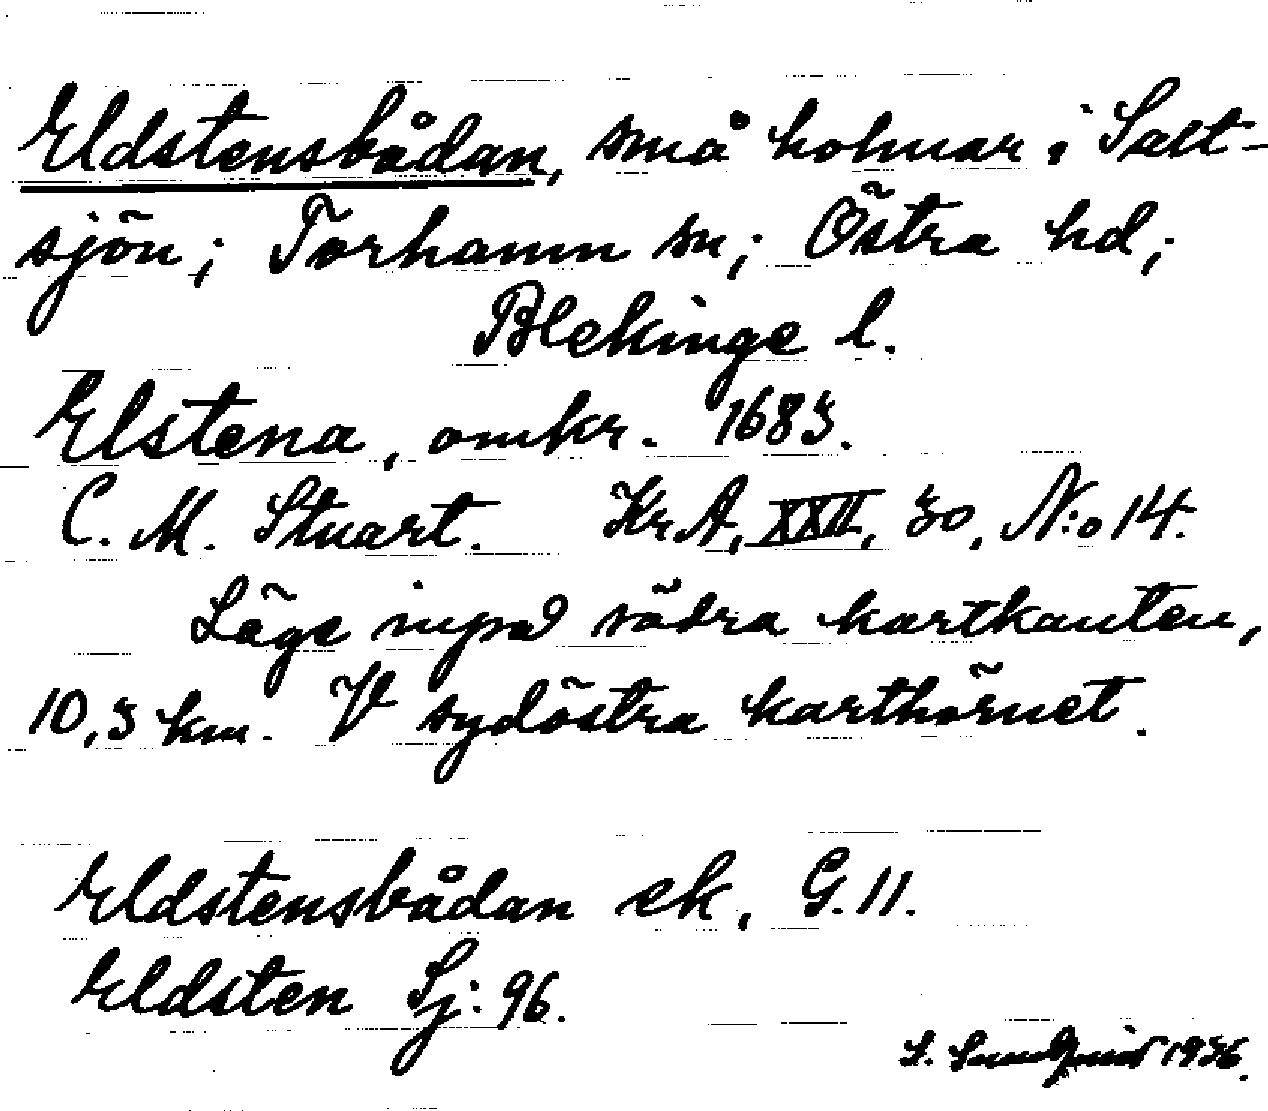 Eldstensbådan, små holmar i Salt-
sjön; Torhamn sn; Östra hd;
Blekinge l.
Elstena, omkr. 1683.
C. M. Stuart. KrA, XXII, 30, N:o 14.
Läge inpå södra kartkanten,
10,3 km. V sydöstra karthörnet.
Eldstensbådan ek, G. 11.
Eldsten Sj: 96.
S. Sundquist 1936.